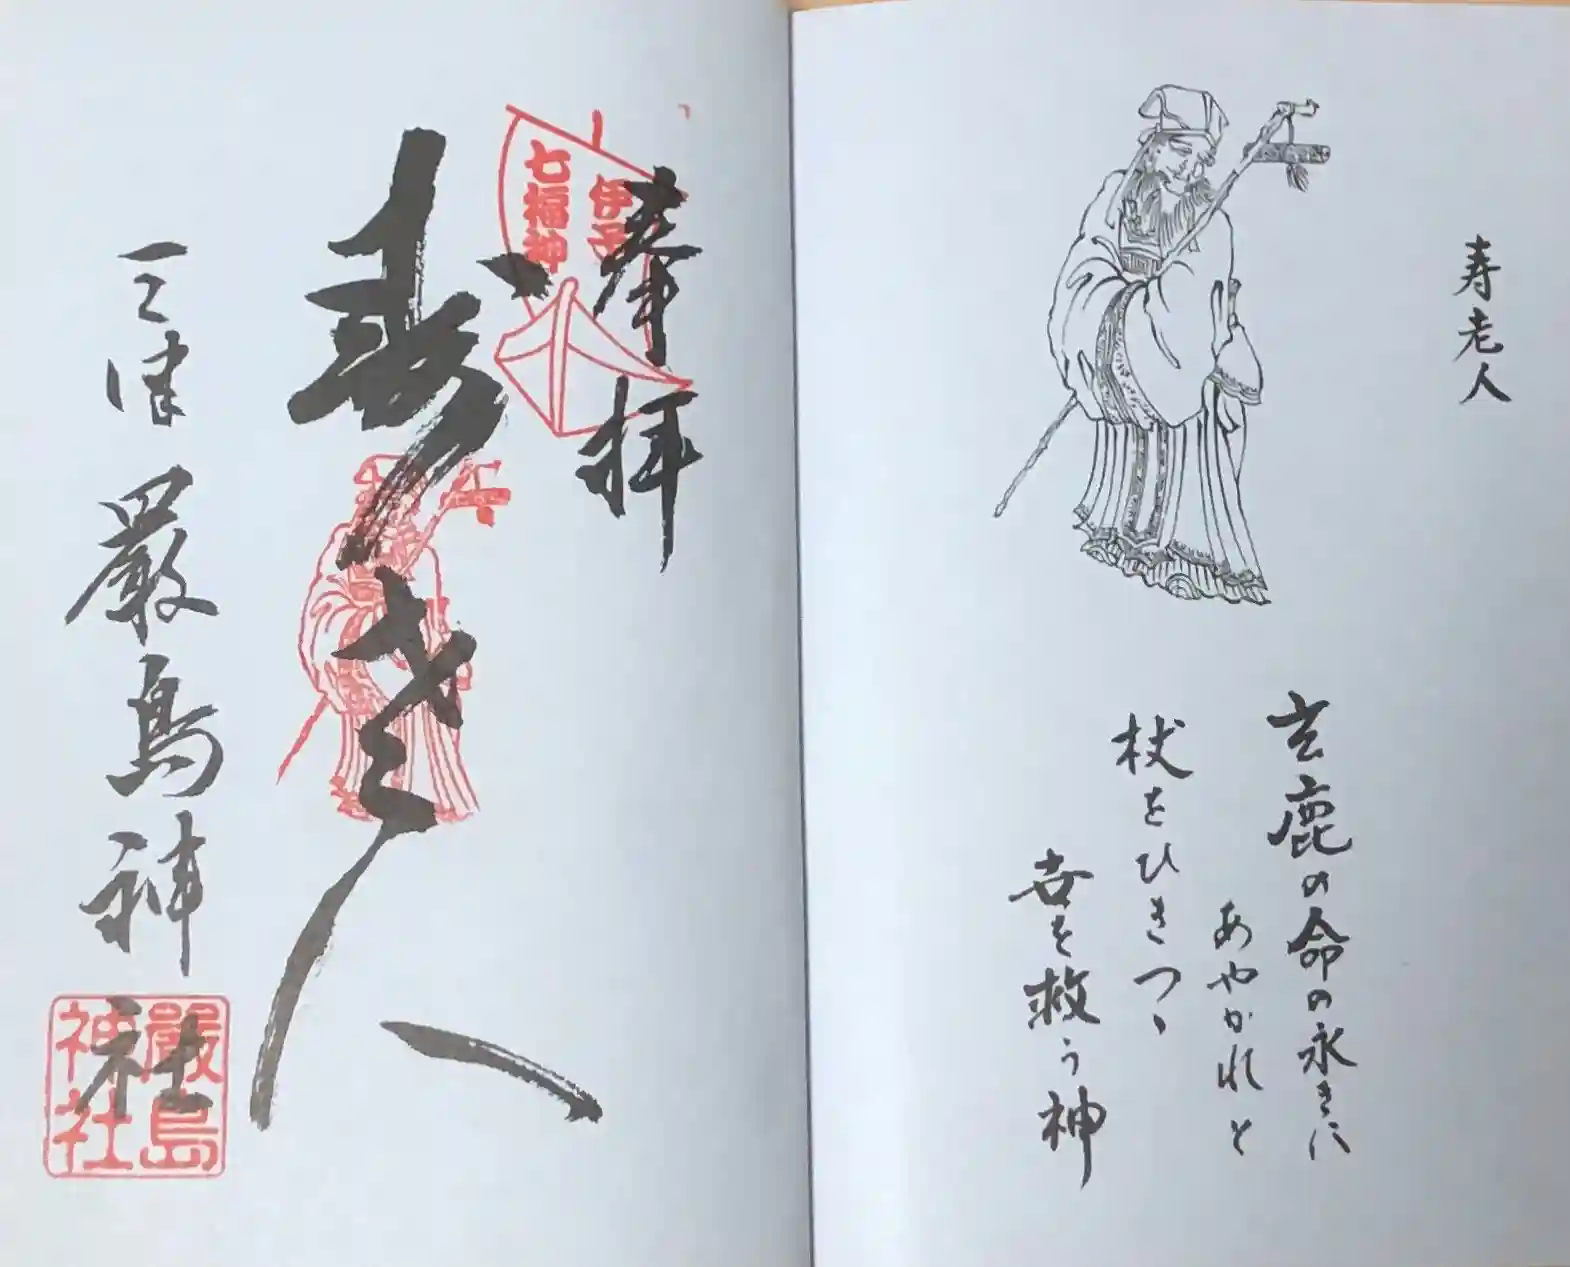 寿老人
玄鹿の命の永きに
あやかれと
杖をひきつゝ
吾を救う神
奉拝
伊予
七福神
寿老人
三津 厳島神社
嚴島
神社